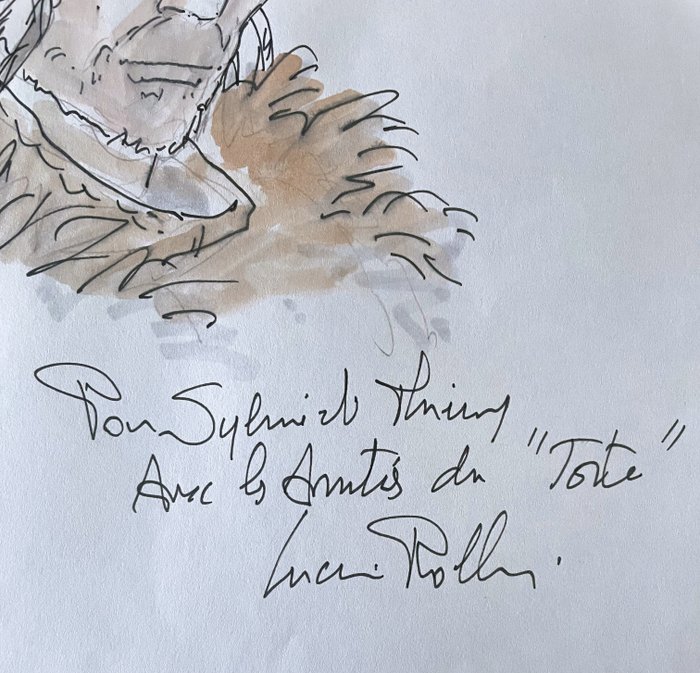 Pour Sylvie et Thierry
Avec les Amitiés du "Torte"
Lucien Rollin.